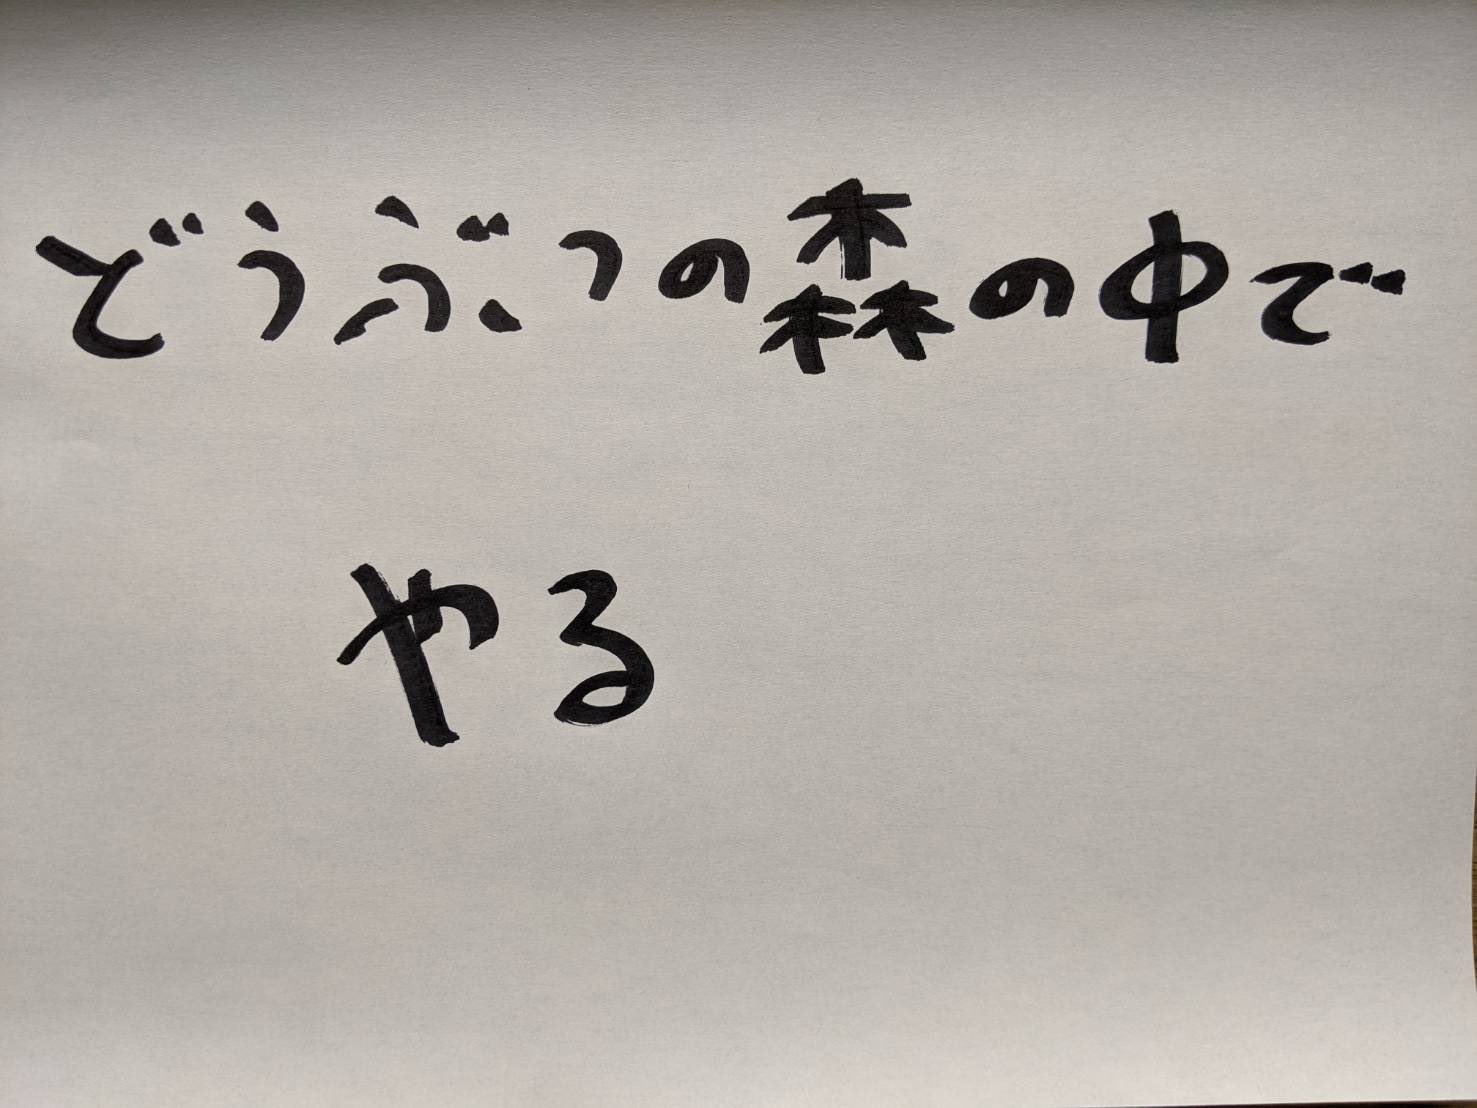 どうぶつの森の中で
やる